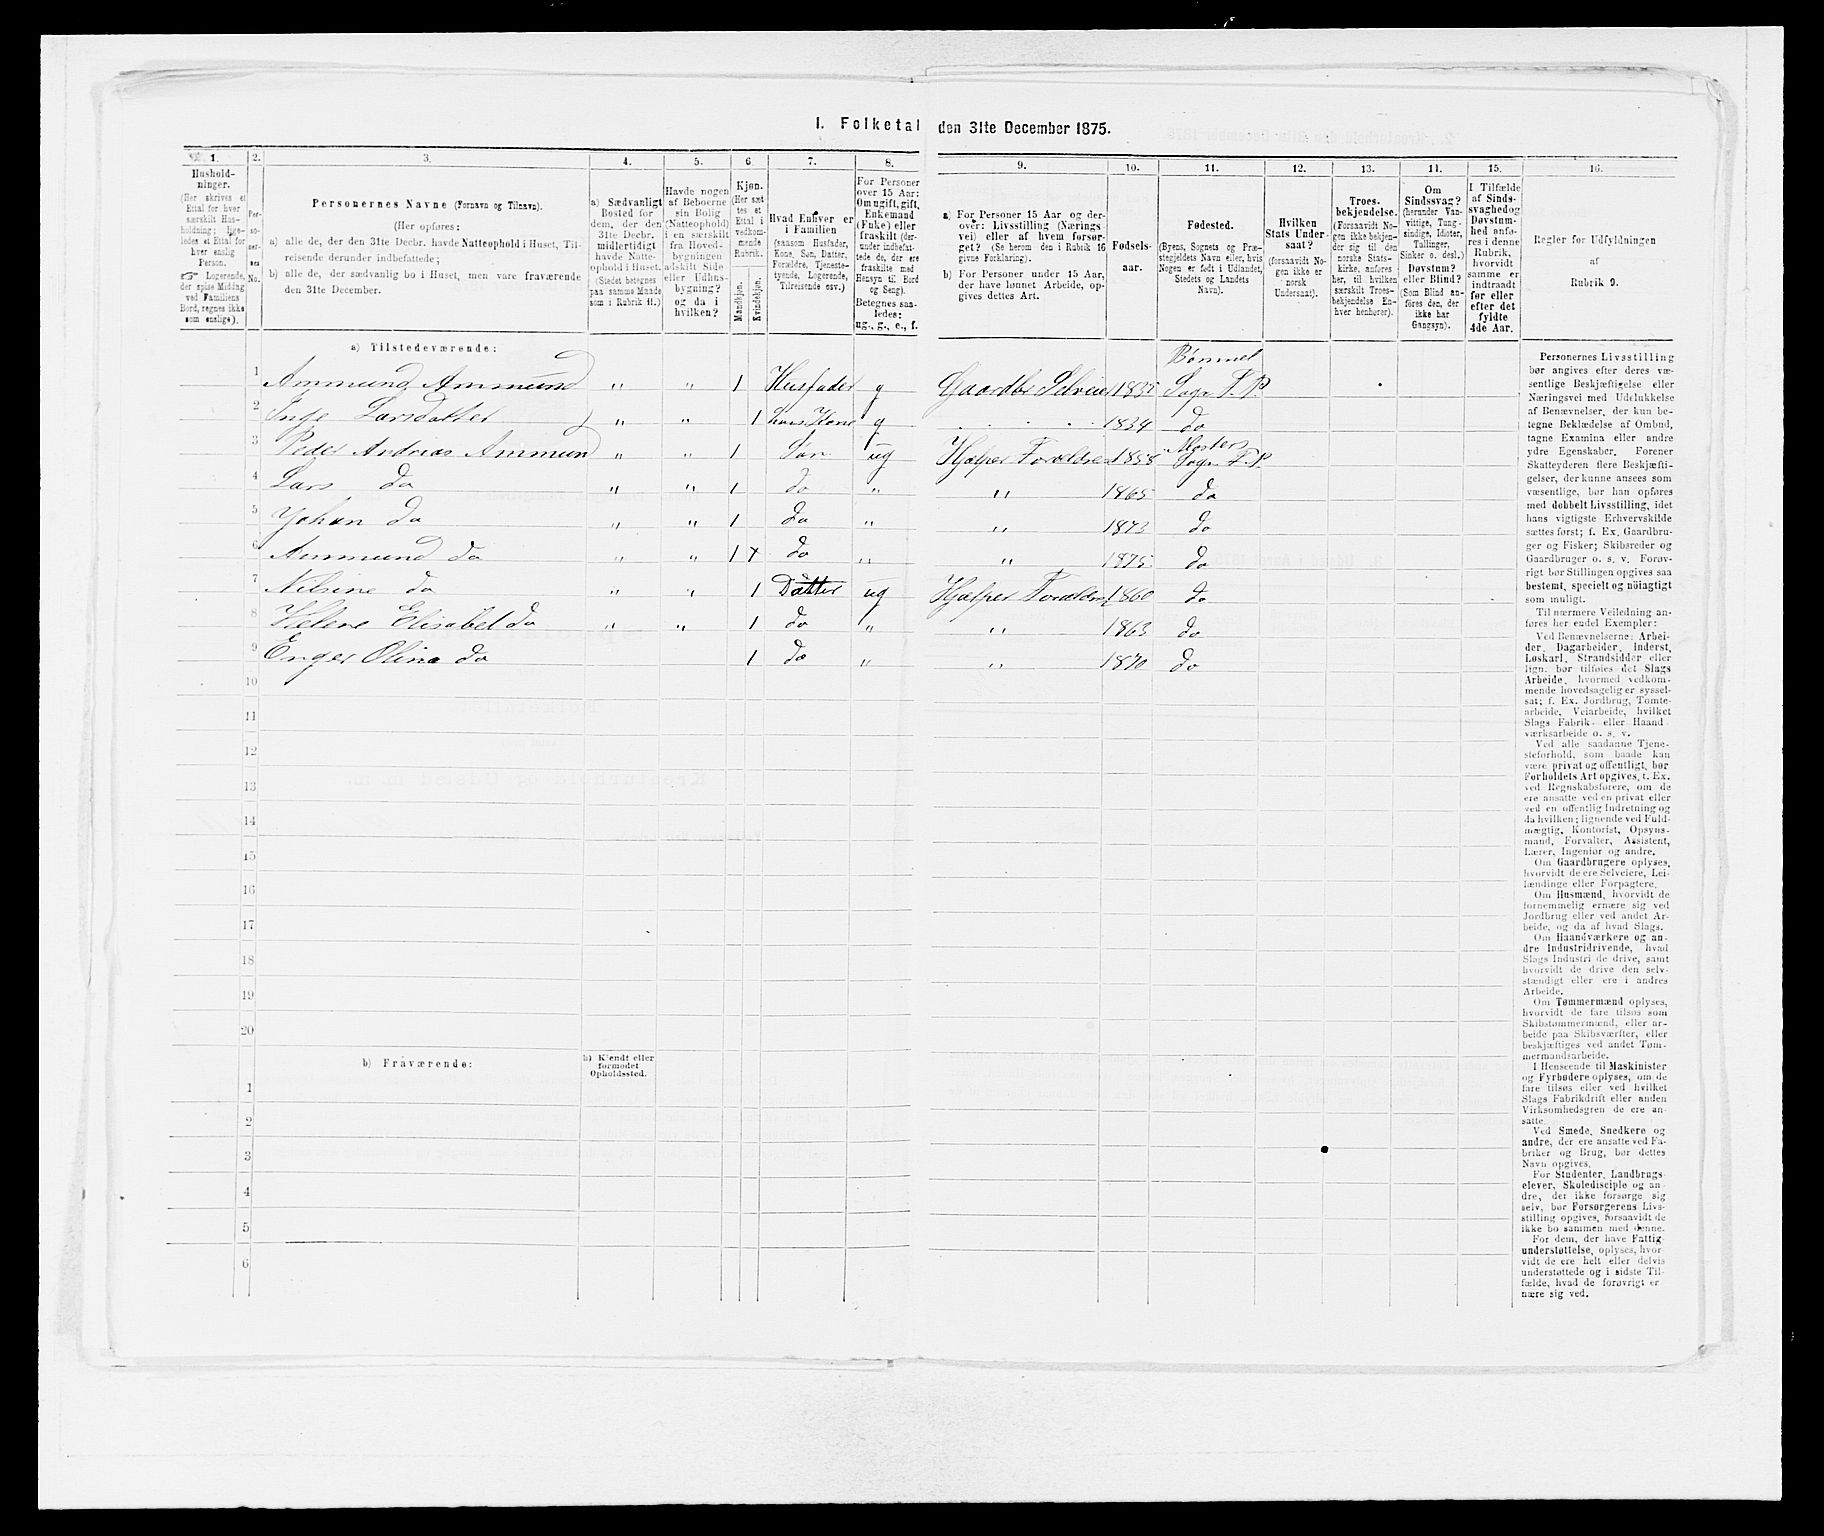 I. Folketal den 31te December 1875.
1.
Hushold-
ninger.
(Her skrives et
Ettal for hver
særskilt Hus-
holdning; lige-
ledes et Ettal for
hver enslig
Person.
☞ Logerende,
der spise Middag
ved Familiens
Bord, regnes ikke
som enslige).
2.
Per-
so-
ner-
nes
No.
3.
Personernes Navne (Fornavn og Tilnavn).
(Her opføres:
a) alle de, der den 31te Decbr. havde Natteophold i Huset, Til-
reisende derunder indbefattede;
b) alle de, der sædvanlig bo i Huset, men vare fraværende
den 31te December.
4.
a) Sædvanligt
Bosted for
dem, der den
31te Decbr.
midlertidigt
havde Natte-
ophold i Huset.
(Stedet betegnes
paa samme Maade
som i Rubrik 11.)
5.
Havde nogen
af Beboerne
sin Bolig
(Natteophold)
i en særskilt
fra Hoved-
bygningen
adskilt Side
eller Udhus-
bygning?
og da i
hvilken?
6.
Kjøn.
(Her sæt
tes et
Ettal i
vedkom-
mende
Rubrik.
Mandkjøn.
Kvindekjøn.
7.
Hvad Enhver er
i Familien
(saasom Husfader,
Kone, Søn, Datter,
Forældre, Tjeneste-
tyende, Logerende,
Tilreisende osv.)
8.
For Personer
over 15 Aar:
Om ugift, gift,
Enkemand
(Enke) eller
fraskilt (der-
under indbefat-
tede de, der ere
fraskilte med
Hensyn til Bord
og Seng).
Betegnes saa-
ledes:
ug., g., e., f.
9.
a) For Personer 15 Aar og der-
over: Livsstilling (Nærings
vei) eller af hvem forsør-
get? (Se herom den i Rubrik 16
givne Forklaring).
b) For Personer under 15 Aar,
der have lønnet Arbeide, op-
gives dettes Art.
10.
Fødsels-
aar.
11.
Fødested.
(Byens, Sognets og Præ-
stegjeldets Navn eller, hvis
Nogen er født i Udlandet,
Stedets og Landets
Navn).
12.
Hvilken
Stats Under-
saat?
(forsaavidt No-
gen ikke er
norsk
Undersaat).
13.
Troes-
bekjendelse.
(Forsaavidt No-
gen ikke bekjen-
der sig til den
norske Stats-
kirke, anføres
her, til hvilken
særskilt Troes-
bekjendelse En-
hver henhører).
14.
Om
Sindssvag?
(herunder Van-
vittige, Tung-
sindige, Idioter,
Tullinger,
Sinker o. desl.)
Døvstum?
eller Blind?
(Som Blind an-
føres den, der
ikke har
Gangsyn).
15.
I Tilfælde
af Sinds-
svaghed og
Døvstum-
hed anfø-
res i denne
Rubrik,
hvorvidt
samme er
indtraadt
før eller
efter det
fyldte
4de Aar.
16.
Regler for Udfyldningen
af
Rubrik 9.
a) Tilstedeværende:
1 Ammund Ammund " " 1 Husfader g Gaardbr Selveier 1835 Bømmel Sogn F. P.
2 Inge Larsdatter " " 1 hans Kone g 1834 do
3 Peder Andrias Ammun " " 1 Søn ug Hjelper Forældre 1858 Mosters Sogn F. P.
4 Lars do " " 1 do " " 1865 do
5 Johan do " " 1 do " " 1873 do
6 Ammund do " " 1 x do " " 1875 do
7 Nilsine do " " 1 Datter ug Hjelper Forældre 1860 do
8 Helene Elisabet do " " 1 do " " 1863 do
9 Enger Olina do 1 do " " 1870 do
10
11
12
13
14
15
16
17
18
19
20
b) Fraværende:
b) Kjendt eller
formodet
Opholdssted.
1
2
3
4
5
6
Personernes Livsstilling
bør angives efter deres væ-
sentlige Beskjæftigelse eller
Næringsvei med Udelukkelse
af Benævnelser, der kun be-
tegne Beklædelse af Ombud,
tagne Examina eller andre
ydre Egenskaber. Forener
Skatteyderen flere Beskjæfti-
gelser, der kunne ansees som
væsentlige, bør han opføres
med dobbelt Livsstilling, idet
hans vigtigste Erhvervskilde
sættes først; f. Ex. Gaardbru-
ger og Fisker; Skibsreder og
Gaardbruger o. s. v. Forøv-
rigt bør Stillingen opgives saa
bestemt, specielt og nøiagtigt
som muligt.
Til nærmere Veiledning an-
føres her endel Exempler:
Ved Benævnelserne: Arbei-
der, Dagarbeider, Inderst,
Løskarl, Strandsidder eller
lign. bør tilføies det Slags
Arbeide, hvormed vedkom-
mende hovedsagelig er syssel-
sat; f. Ex. Jordbrug, Tomte-
arbeide, Veiarbeide, hvilket
Slags Fabrik- eller Haand
værksarbeide o. s. v.
Ved alle saadanne Tjene-
steforhold, som baade kan
være privat og offentligt, bør
Forholdets Art opgives, t. Ex.
ved Regnskabsførere, om de
ere ansatte ved en privat eller
ved en offentlig Indretning og
da hvilken; lignende ved Fuld-
mægtig, Kontorist, Opsyns-
mand, Forvalter, Assistent,
Lærer, Ingeniør og andre.
Om Gaardbrugere oplyses,
hvorvidt de ere Selveiere, Lei-
lændinge eller Forpagtere.
Om Husmænd, hvorvidt de
fornemmelig ernære sig ved
Jordbrug eller ved andet Ar-
beide, og da af hvad Slags.
Om Haandværkere og an-
dre Industridrivende, hvad
Slags Industri de drive, samt
hvorvidt de drive den selv-
stændigt eller ere i andres
Arbeide.
Om Tømmermænd oplyses,
hvorvidt de fare tilsøs som
Skibstømmermænd, eller ar-
beide paa Skibsværfter, eller
beskjæftiges ved andet Tøm-
mermandsarbeide.
I Henseende til Maskinister
og Fyrbødere oplyses, om de
fare tilsøs eller ved hvilket
Slags Fabrikdrift eller anden
Virksomhedsgren de ere an-
satte.
Ved Smede, Snedkere og
andre, der ere ansatte ved Fa-
briker og Brug, bør dettes
Navn opgives.
For Studenter, Landbrugs-
elever, Skoledisciple og an-
dre, der ikke forsørge sig
selv, bør Forsørgerens Livs-
stilling opgives, forsaavidt de
ikke bo sammen med denne.
For dem, der have Fattig-
understøttelse, oplyses, hvor-
vidt de ere helt eller delvis
understøttede og i sidste Til-
fælde, hvad de forøvrigt er
nære sig ved.